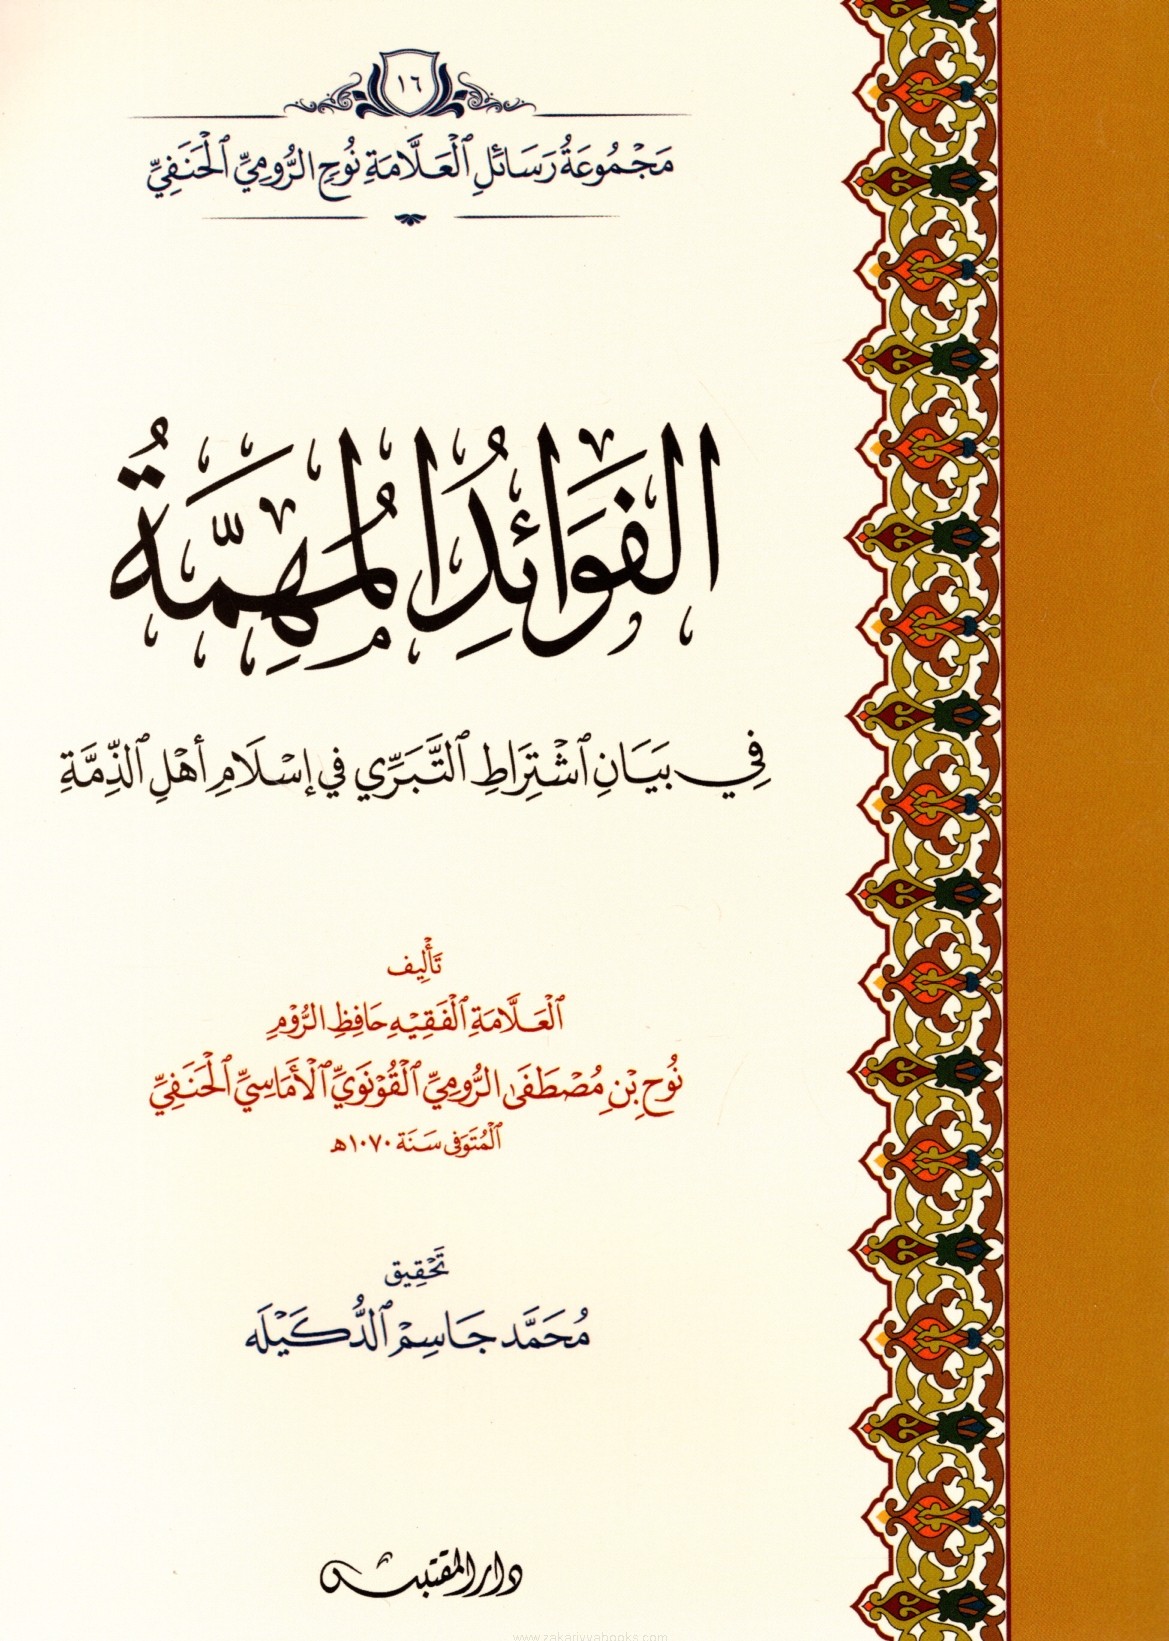 ١٦
مَجْمُوعَةُ رَسَائِلِ ٱلْعَلَّامَةِ نُوحٍ الرُّومِيِّ ٱلْحَنَفِيِّ
الفَوَائِدُ المُهِمَّةُ
فِي بَيَانِ ٱشْتِرَاطِ ٱلتَّبَرِّي فِي إِسْلَامِ أَهْلِ ٱلذِّمَّةِ
تَأْلِيف
ٱلْعَلَّامَةِ ٱلْفَقِيْهِ حَافِظِ الرُّوْمِ
نُوحِ بْنِ مُصْطَفَى الرُّومِيِّ ٱلْقُوْنَوِيِّ ٱلْأَمَاسِيِّ ٱلْحَنَفِيِّ
ٱلْمُتَوَفَّى سَنَة ١٠٧٠ هـ
تَحْقِيق
مُحَمَّد جَاسِمْ ٱلدُّكَيْلَه
دار المقتبس
www.zakariyyabooks.com